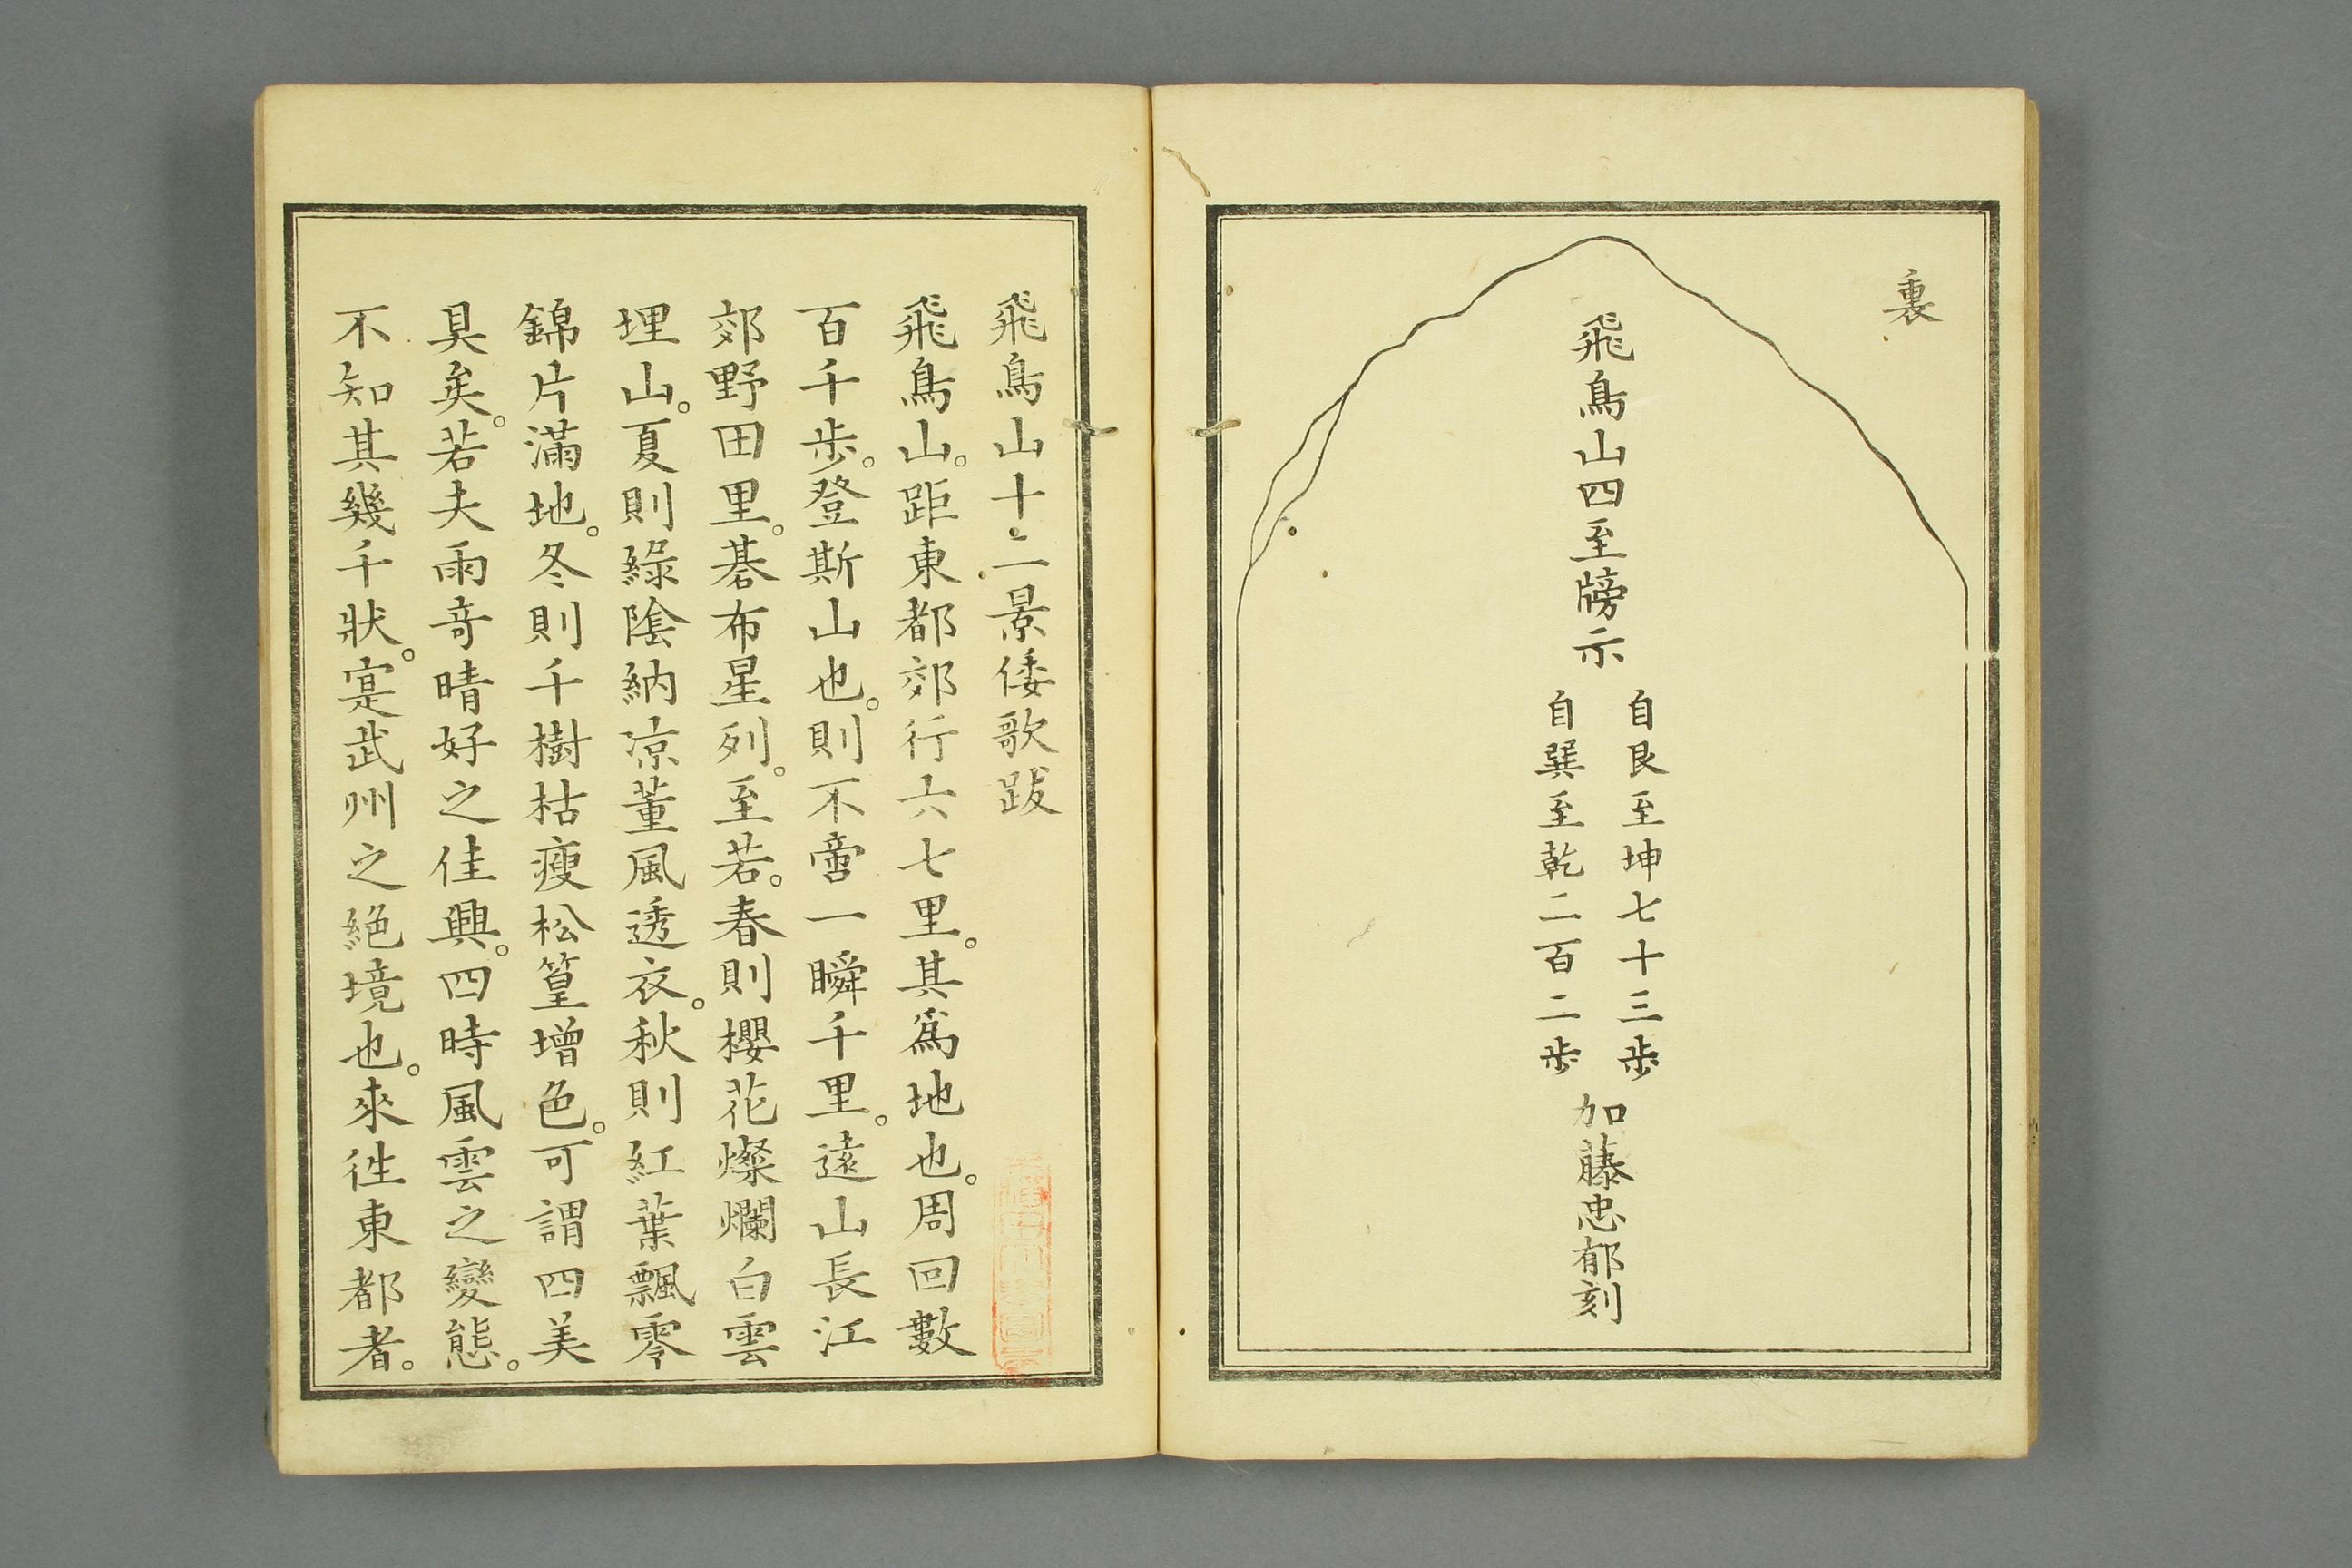 裏
飛鳥山四至牓示
自艮至坤七十三歩
自巽至乾二百二歩
加藤忠郁刻
飛鳥山十二景倭歌跋
飛鳥山。距東都郊行六七里。其爲地也。周回數
百千歩。登斯山也。則不啻一瞬千里。遠山長江
郊野田里。碁布星列。至若。春則櫻花燦爛白雲
埋山。夏則綠陰納凉薫風透衣。秋則紅葉飄零
錦片滿地。冬則千樹枯瘦松篁增色。可謂四美
具矣。若夫雨竒晴好之佳興。四時風雲之變態。
不知其幾千狀。寔武州之絕境也。來徃東都者。